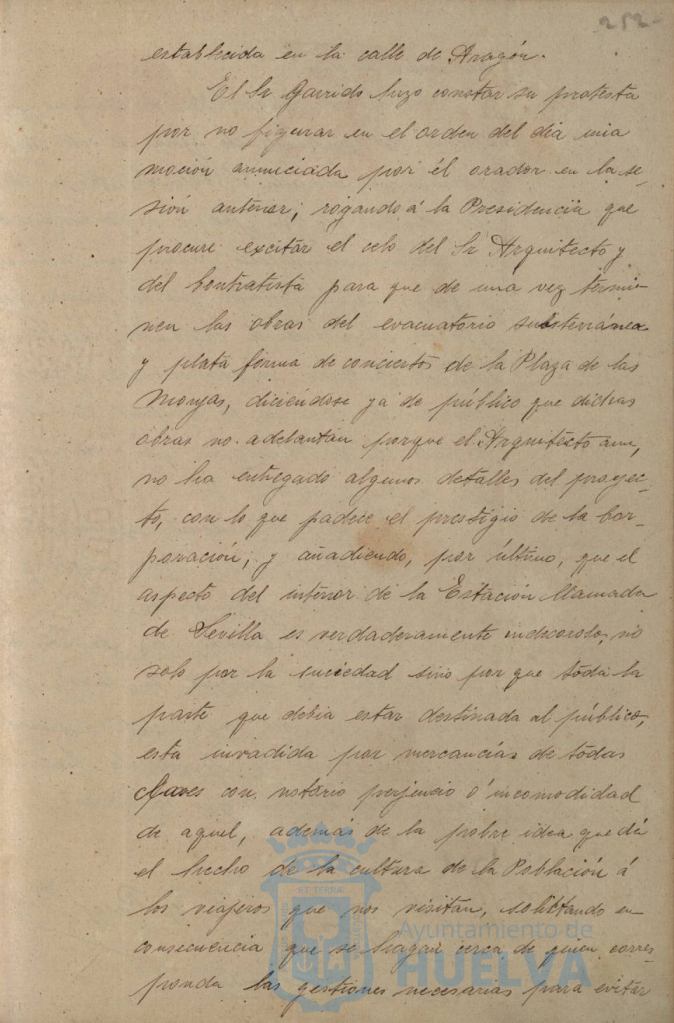 252-
establecida en la calle de Aragón.
El Sr Garrido hizo constar su protesta
por no figurar en el orden del dia una
moción anunciada por él orador en la se-
sión anterior, rogando á la Presidencia que
procure excitar el celo del Sr Arquitecto y
del Contratista para que de una vez termi-
nen las obras del evacuatorio subterránea
y plata forma de conciertos de la Plaza de las
Monjas, diciéndose ya de público que dichas
obras no adelantan porque el Arquitecto aun,
no ha entregado algunos detalles del proyec-
to, con lo que padece el prestigio de la Cor-
poración; y añadiendo, por último, que el
aspecto del interior de la Estación llamada
de Sevilla es verdaderamente indecoroso, no
solo por la suciedad sino por que toda la
parte que debia estar destinada al público,
esta invadida por mercancías de todas
clases con notorio perjuicio é incomodidad
de aquel, además de la pobre idea que dá
el hecho de la cultura de la Población á
los viajeros que nos visitan, solicitando en
consecuencia que se hagan cerca de quien corres
ponda las gestiones necesarias para evitar
Ayuntamiento de
HUELVA